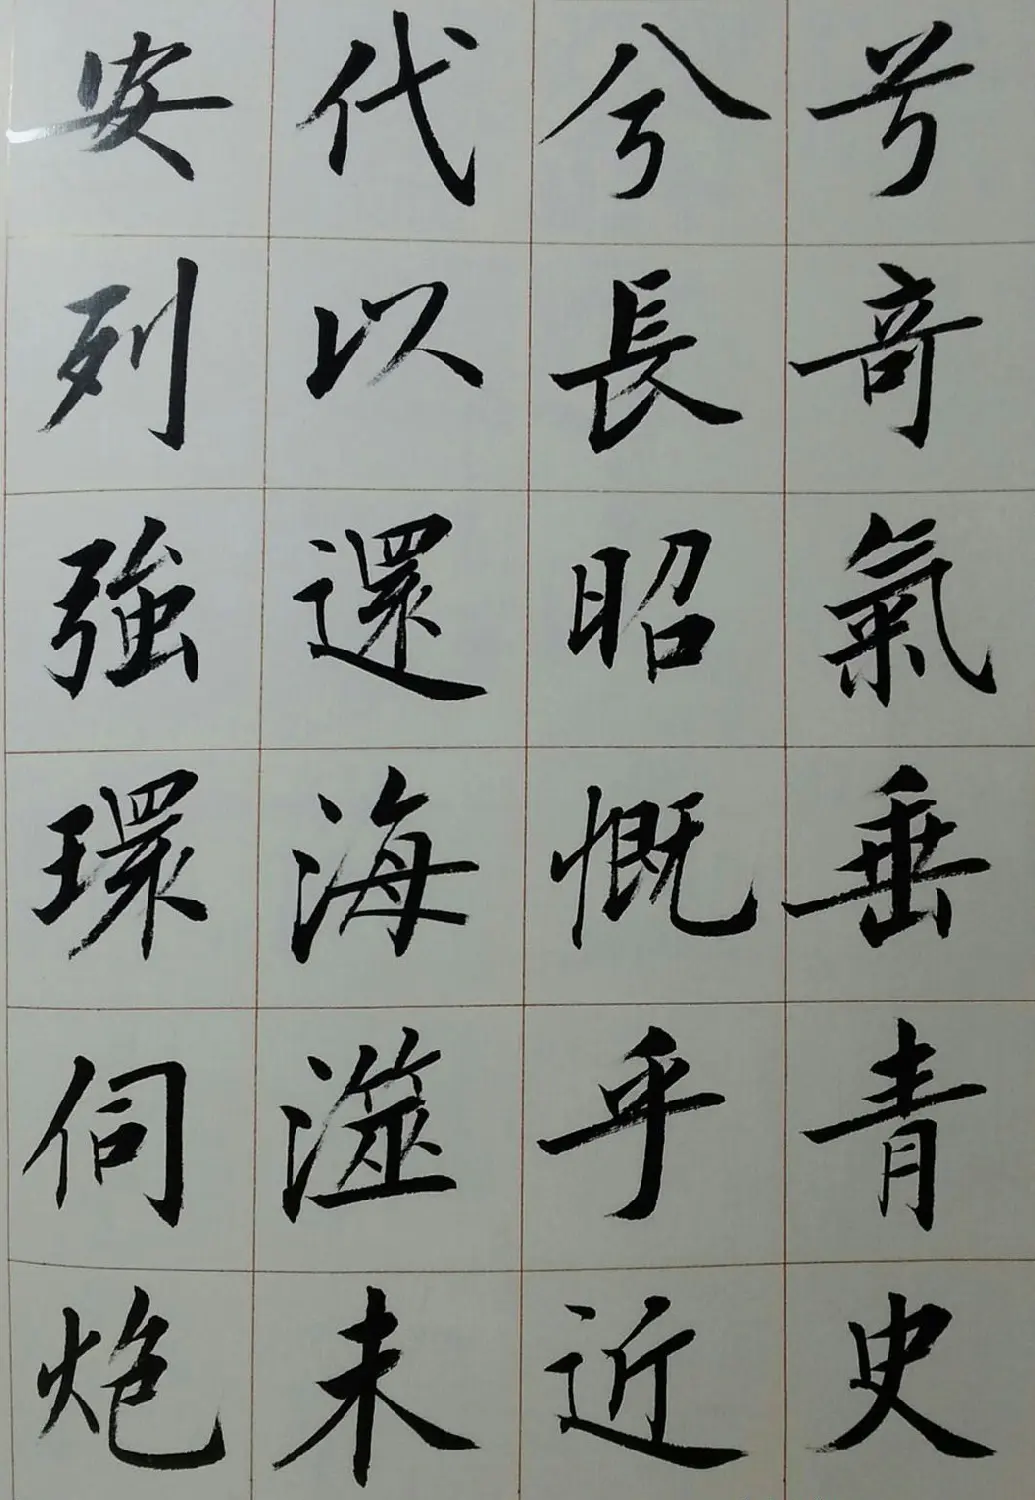 兮奇氣垂青史
兮長昭慨乎近
代以還海澨未
安列強環伺炮